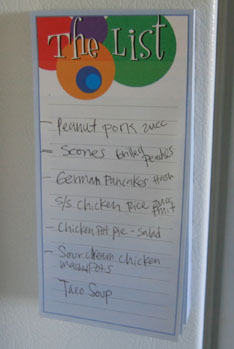 The List
- Peanut pork zucc
- Scones Grilled peaches
- German Pancakes Hash
S/S Chicken Rice zucc fruit
- Chicken Pot pie - salad
- Sour Cream Chicken
Mashed Pots
Taco Soup